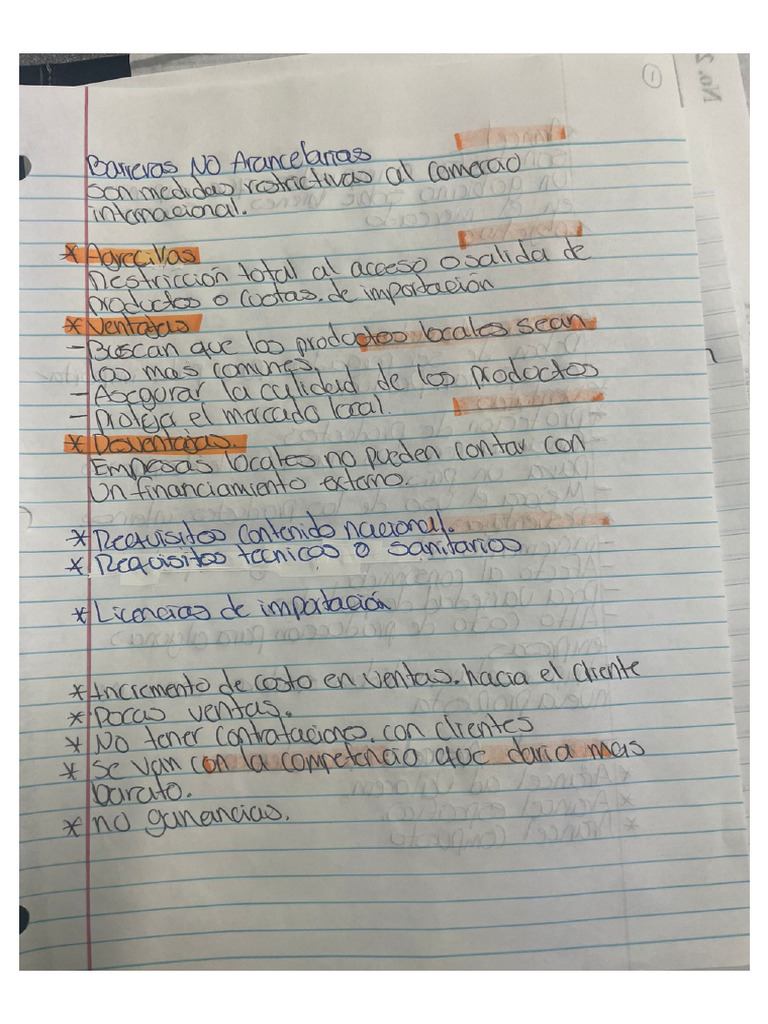 Barreras NO Arancelarias
son medidas restrictivas al comercio
internacional.
* Agrecivas
Restricción total al acceso o salida de
productos o cuotas. de importación
* Ventajas
- Buscan que los productos locales sean
los mas comunes.
- Asegurar la calidad de los productos
- proteja el mercado local.
* Desventajas.
Empresas locales no pueden contar con
un financiamiento externo.
* Requisitos contenido nacional.
* Requisitos tecnicos o sanitarios
* Licencias de importación
* Incremento de costo en ventas. hacia el cliente
* Pocas ventas.
* No tener contrataciones. con clientes
* se van con la competencia que daria mas
barato.
* no ganancias.
1
No.